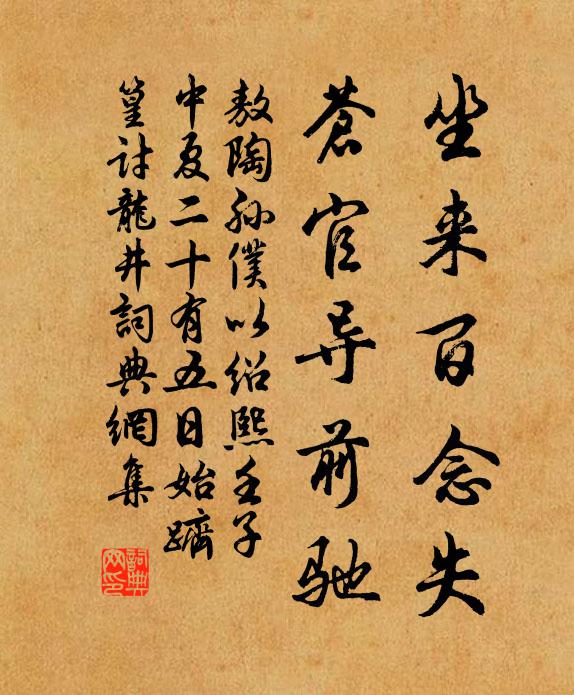 坐来百念失
蒼官导前驰
敖陶孙僕以绍熙壬子
中夏二十有五日始躋
篁討龍井詞典網集
詞典网印